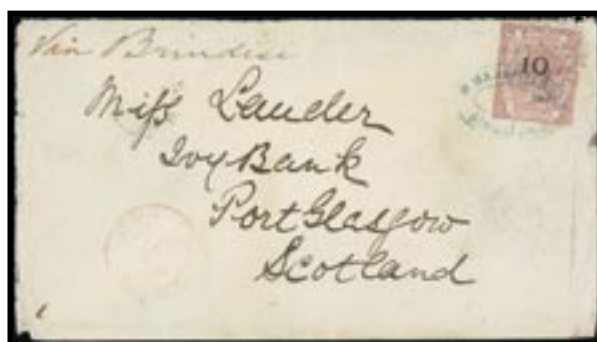 Via Brindisi
10
Miss Lauder
Ivy Bank
Port Glasgow
Scotland